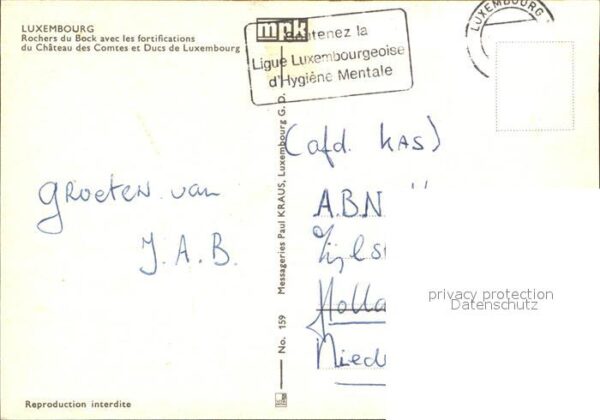 LUXEMBOURG
Rochers du Bock avec les fortifications
du Château des Comtes et Ducs de Luxembourg
mpk
Soutenez la
Ligue Luxembourgeoise
d'Hygiène Mentale
LUXEMBOURG
Groeten van
J.A.B.
No. 159 Messageries Paul KRAUS, Luxembourg G. D.
(afd. KAS)
A.B.N
Holla
Nied
privacy protection
Datenschutz
Reproduction interdite